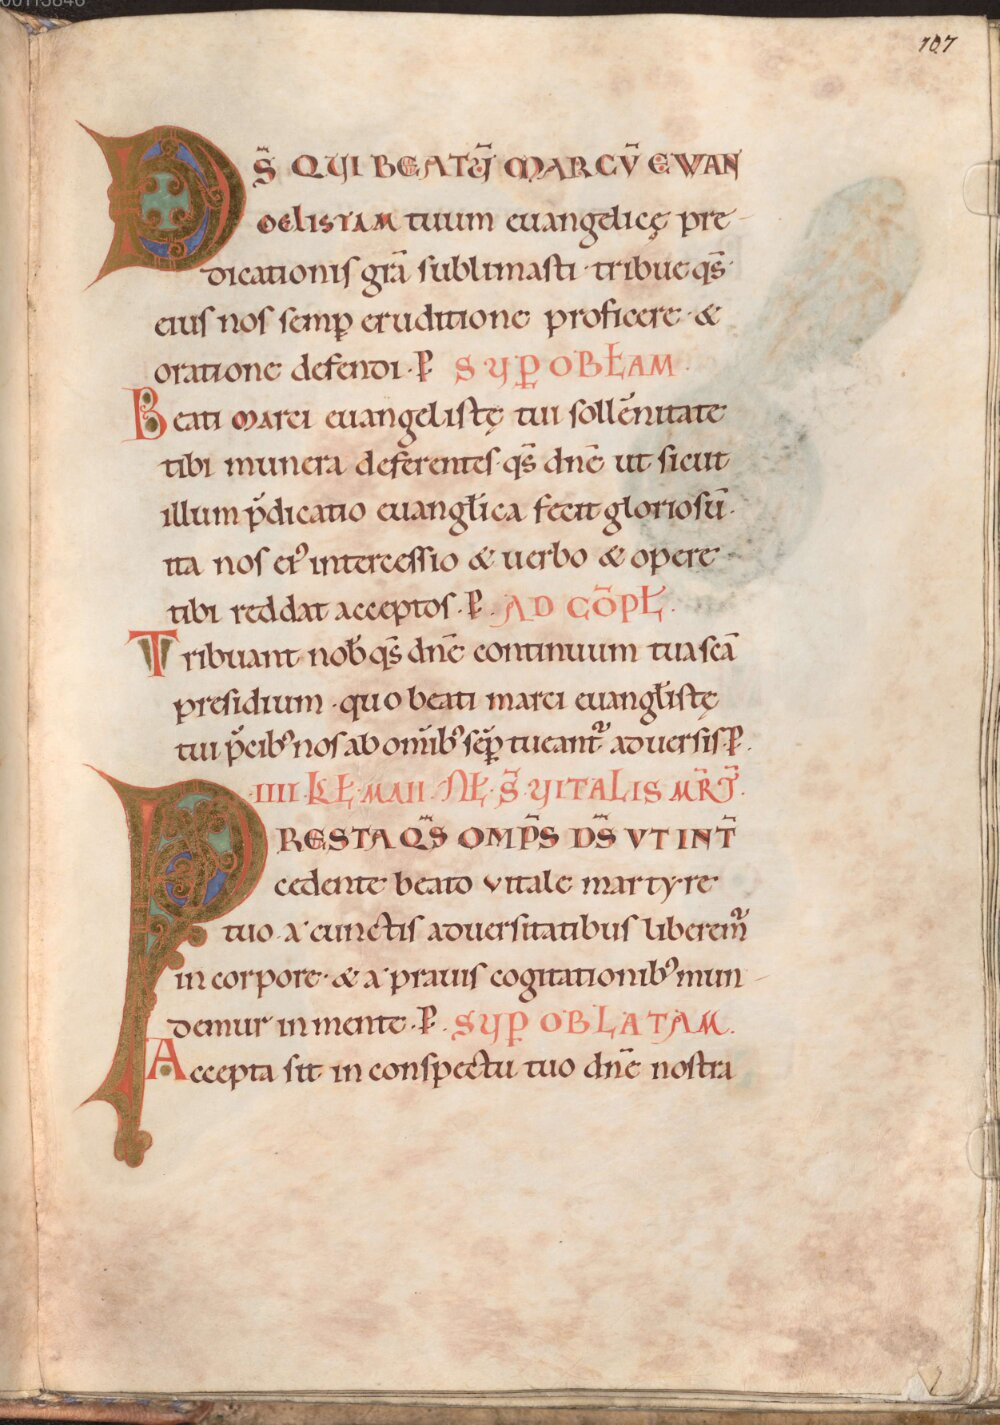 107
DS̄ QUI BEATŪ MARCV̄ EWAN
GELISTAM tuum euangelicę pre
dicationis grā sublimasti· tribue qs̄·
eius nos semꝑ eruditione proficere· &
oratione defendi· P̱ SUP̱ OBŁAM·
Beati marci euangelistę tui sollēnitate
tibi munera deferentes· qs̄ dnē ut sicut
illum p̄dicatio euangl̄ica fecit gloriosū·
ita nos ei᾽ intercessio & uerbo & opere
tibi reddat acceptos· P̱· AD CŌPŁ·
Tribuant nob̄ qs̄ dnē continuum tua scā
presidium· quo beati marci euangl̄istę
tui p̄cib᾽ nos ab omīb᾽ sēꝑ tueant᷑ aduersis· P̱·
IIII· KŁ· MAII· NŁ· S̄· UITALIS MR̄Ī·
PRESTA QS̄ OMPS̄ DS̄ VT INT̄
cedente beato vitale martyre
tuo· a cunctis aduersitatibus liberem᷑
in corpore· & a prauis cogitationib᾽ mun
demur in mente· P̱· SUP̱ OBLATAM·
Accepta sit in conspectu tuo dnē nostra